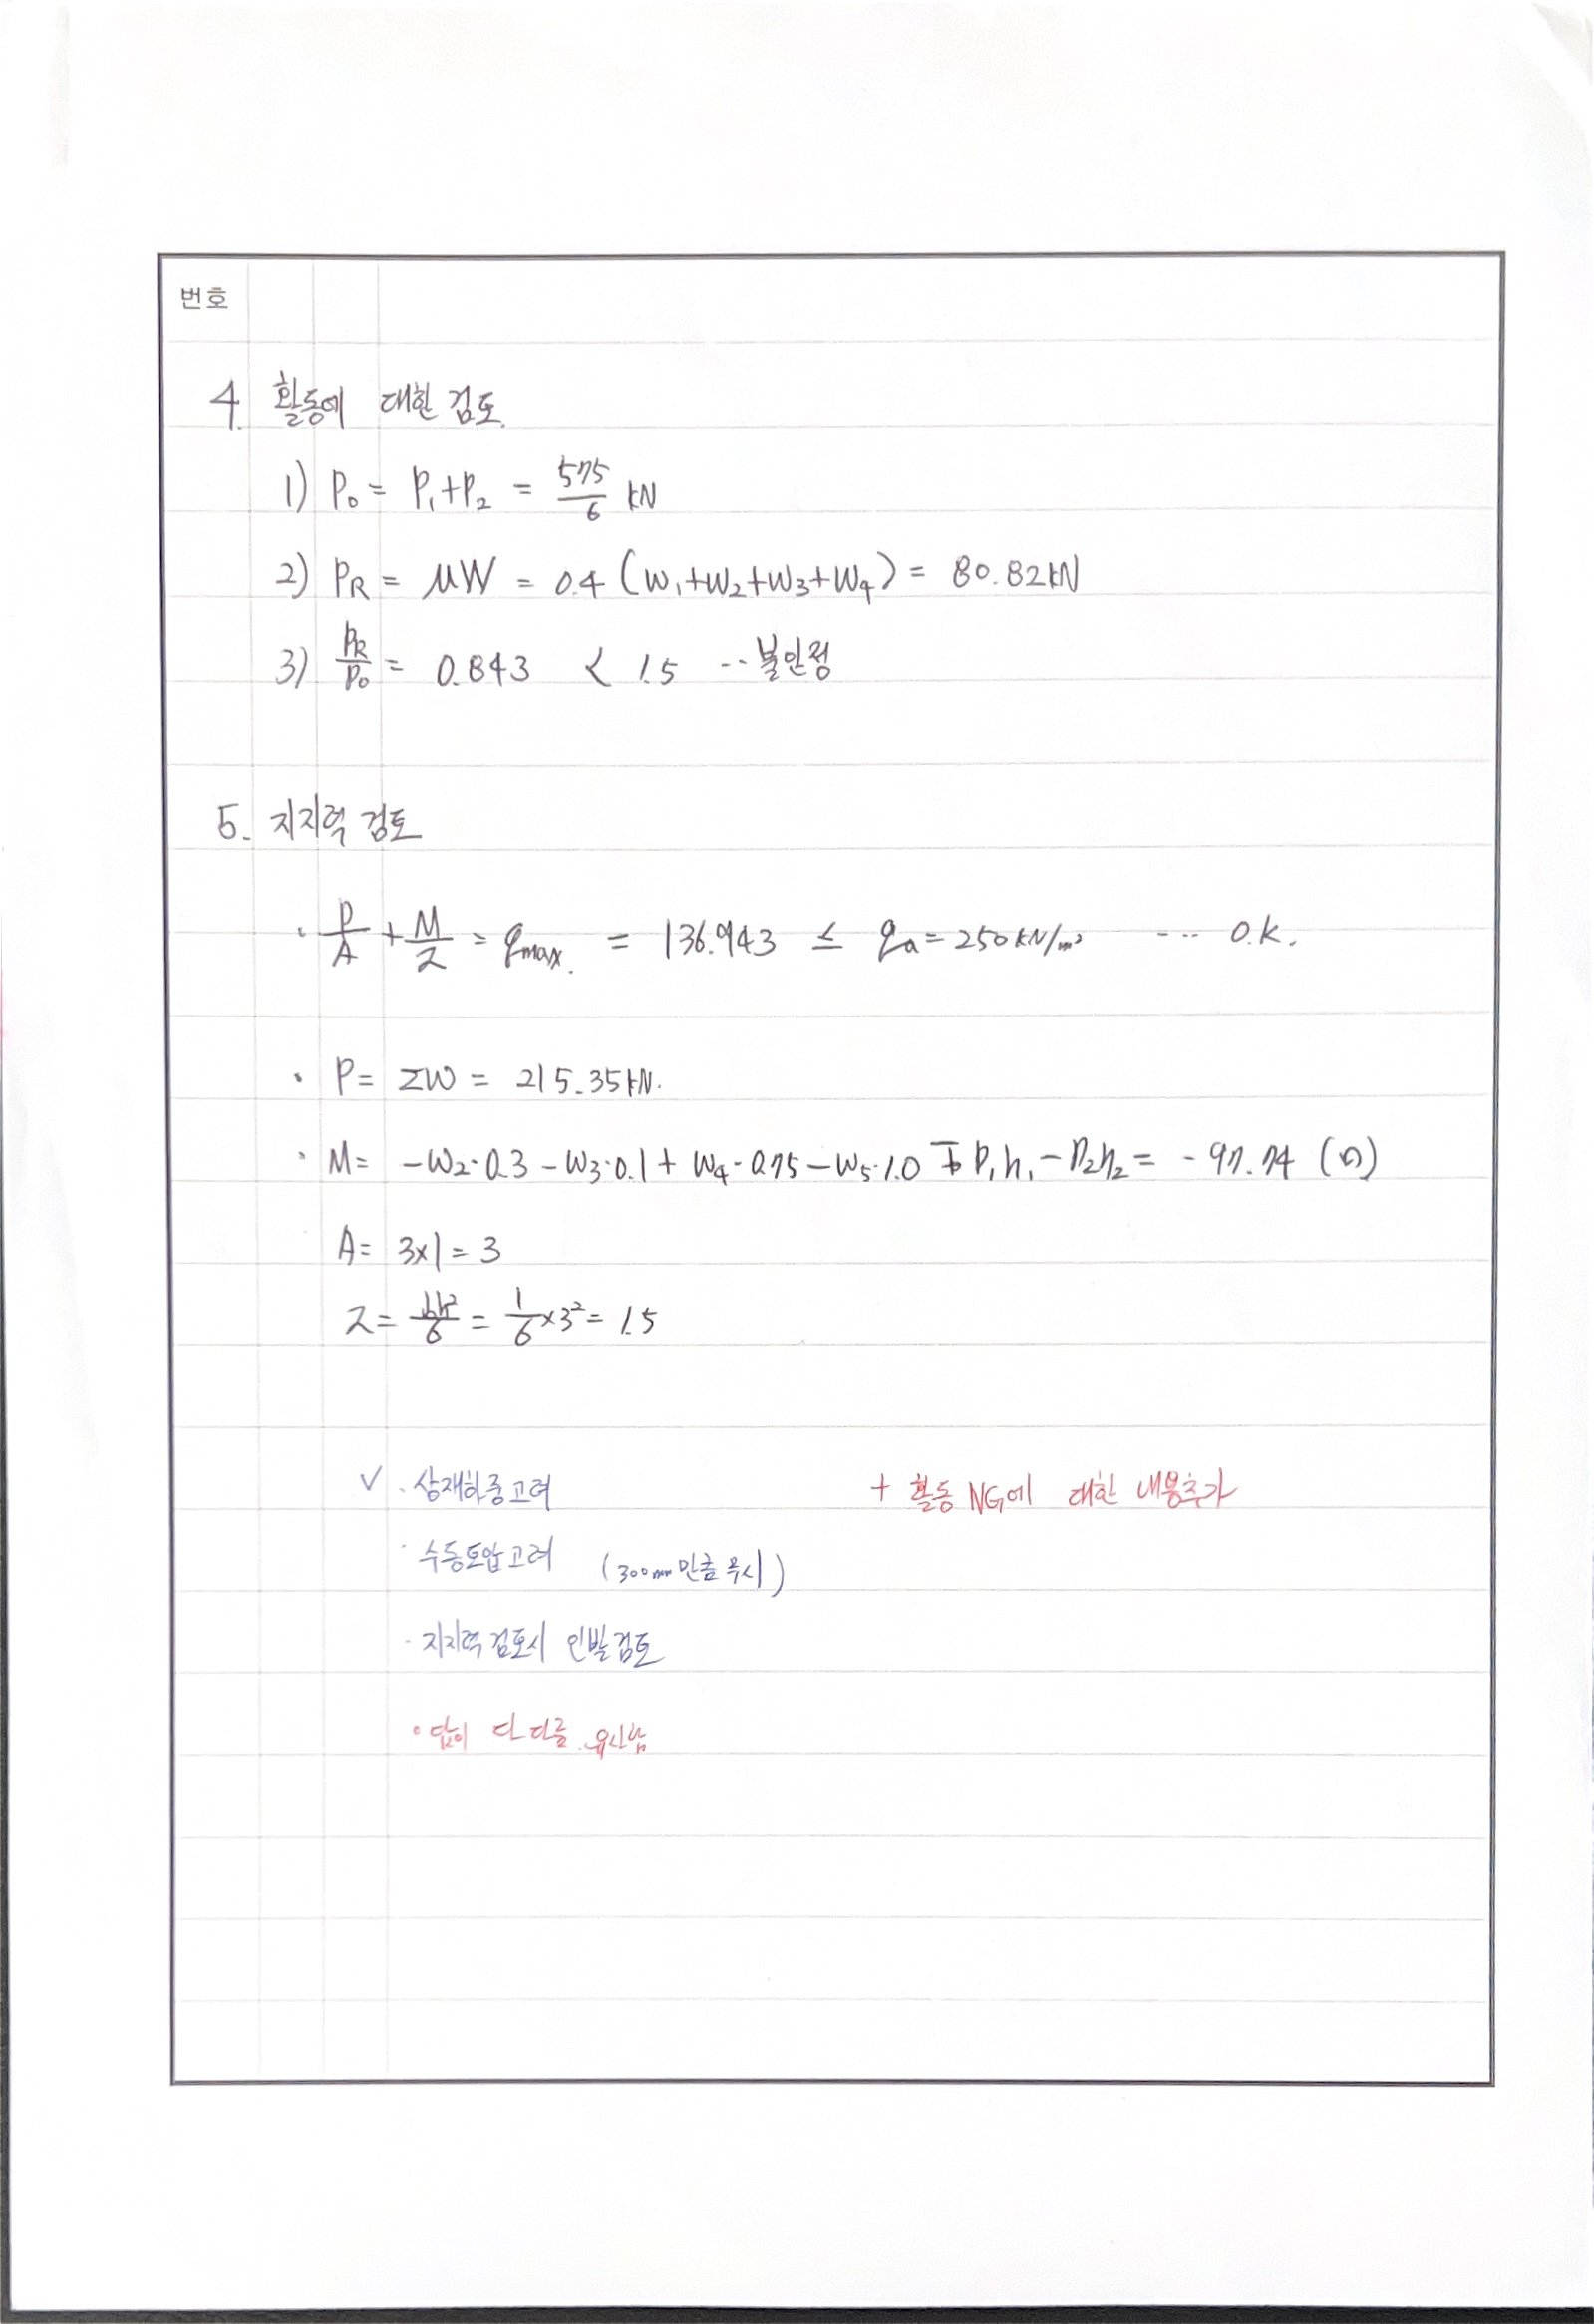 번호
4. 활동에 대한 검토.
1) P₀ = P₁+P₂ = 575/6 kN
2) PR = μW = 0.4 (W₁+W₂+W₃+W₄) = 80.82kN
3) PR/P₀ = 0.843 < 1.5 ‥불안정
5. 지지력 검토
· P/A + M/Z = qmax. = 136.943 ≤ qa = 250 kN/m² ---- O.K.
· P = ΣW = 215.35kN.
· M = -W₂·0.3 - W₃·0.1 + W₄·0.75 - W₅·1.0 P₁h₁ - P₂h₂ = -97.74 (↶)
A = 3×1 = 3
Z = bh²/6 = 1/6 ×3² = 1.5
✓ · 상재하중고려 + 활동 NG에 대한 내용추가
· 수동토압고려 (300mm만큼 무시)
· 지지력 검토시 인발검토
· 답이 다 다름.